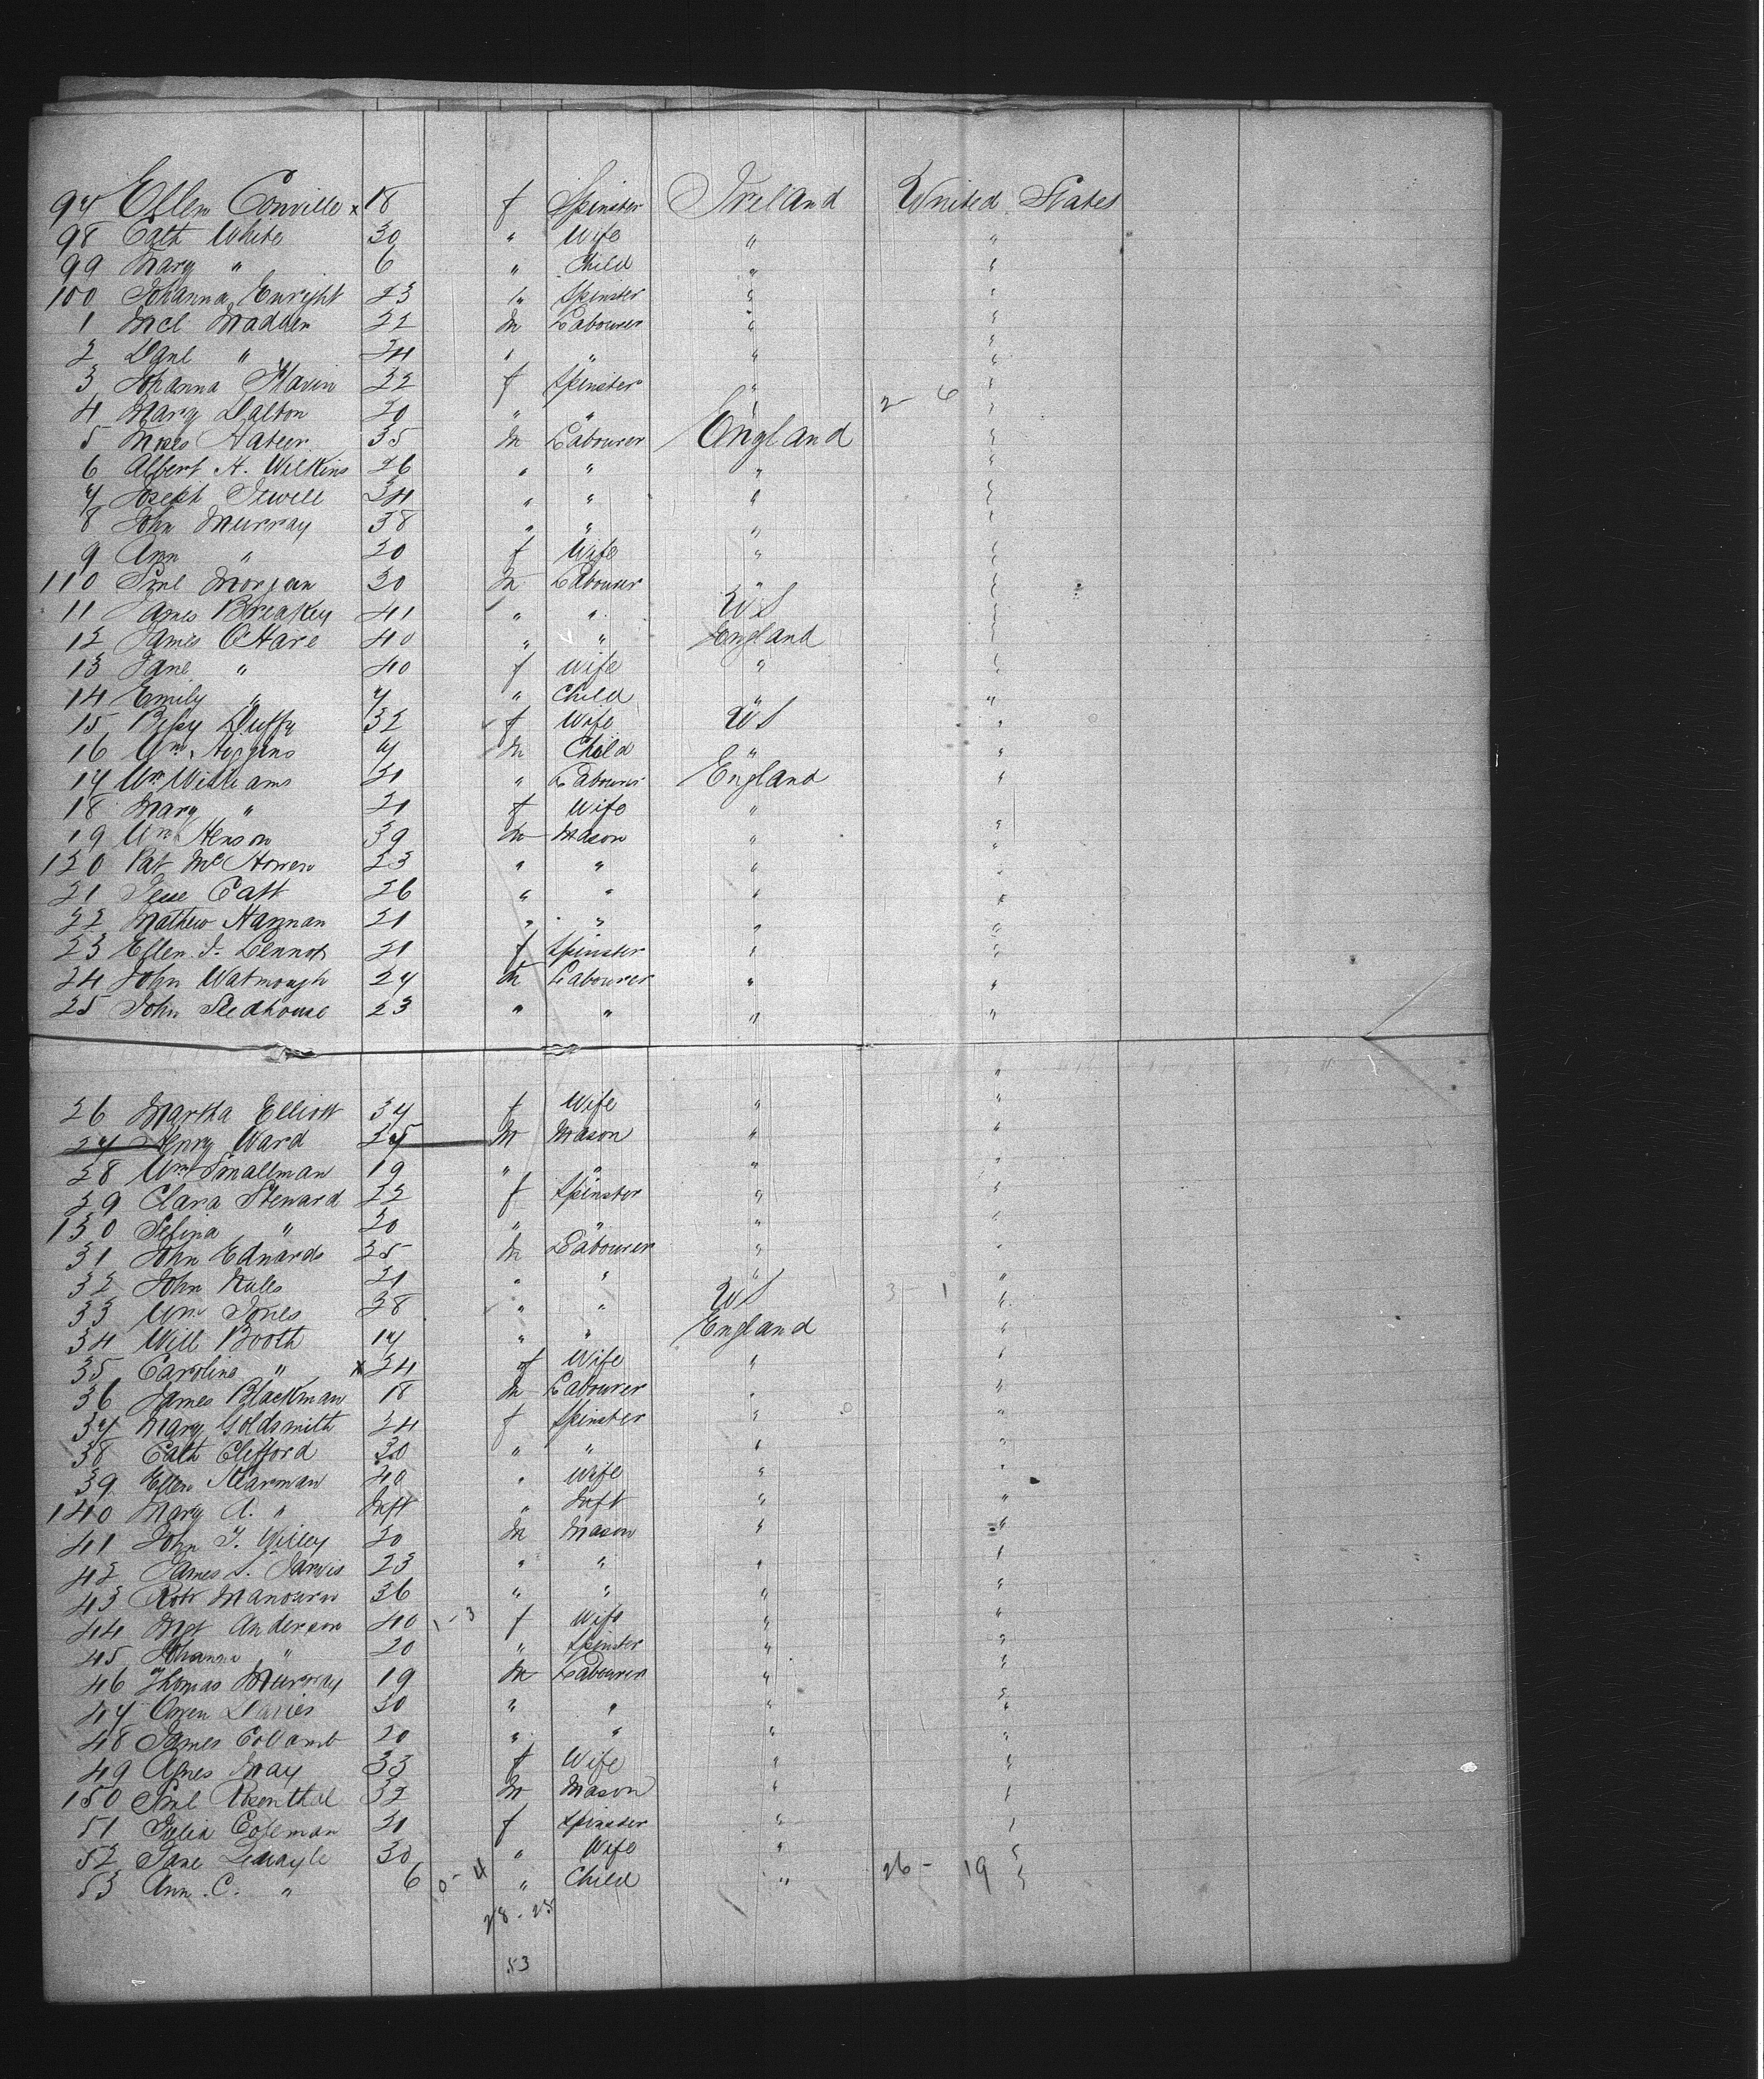 97 Ellen Conville x 18 f Spinster Ireland United States
98 Cath White 30 " Wife " "
99 Mary " 6 " Child " "
100 Johanna Enright 23 " Spinster " "
1 Mcl Madden 22 M Labourer " "
2 Danl " 24 " " " "
3 Johanna Flavin 22 f Spinster " "
4 Mary Dalton 20 " " " 2 - 6 "
5 Moses Hateer 35 M Labourer England "
6 Albert H. Wilkins 26 " " " "
7 Joseph Jewell 34 " " " "
8 John Murray 38 " " " "
9 Ann " 20 f Wife " "
110 Saml Morgan 30 M Labourer " "
11 James Breakey 41 " " US "
12 James O'Hare 40 " " England "
13 Jane " 40 f Wife " "
14 Emily " 7 " Child " "
15 Bessy Duffy 32 f Wife US "
16 Wm Higgins 7 M Child " "
17 Wm Williams 21 " Labourer England "
18 Mary " 21 f Wife "
19 Wm Henson 39 M Mason " "
120 Pat Mc 23 " " " "
21 Jesse Catt 26 " " " "
22 Mathew Hannan 21 " " " "
23 Ellen J. Lennox 21 f Spinster " "
24 John Watmough 27 M Labourer " "
25 John Sledhouse 23 " " " "
26 Martha Elliott 37 f Wife " "
27 Henry Ward 25 M Mason " "
28 Wm Smallman 19 " " " "
29 Clara Steward 22 f Spinster " "
130 Selina " 20 " " " "
31 John Edwards 25 M Labourer " "
32 John 21 " " " "
33 Wm Jones 38 " " US 3 - 1 "
34 Will Booth 17 " " England "
35 Caroline " x 24 f Wife " "
36 James Blackman 18 M Labourer " "
37 Mary Goldsmith 24 f Spinster " "
38 Cath Clifford 30 " " " "
39 Ellen 40 " Wife " "
140 Mary A. " Inft " Inft " "
41 John T. Willey 20 M Mason " "
42 James S. Jarvis 23 " " " "
43 Robt 36 " " " "
44 Mgt Anderson 40 1 - 3 f Wife " "
45 Johanna " 20 " Spinster " "
46 Thomas Murray 19 M Labourer " "
47 Owen Davies 30 " " " "
48 James 20 " " " "
49 Agnes May 33 f Wife " "
150 Saml Rosenthal 32 M Mason " "
51 Julia Coleman 21 f Spinster " "
52 Jane 30 " Wife " "
53 Ann. C. " 6 0 - 4 " Child " 26 - 19 "
28 - 25
53